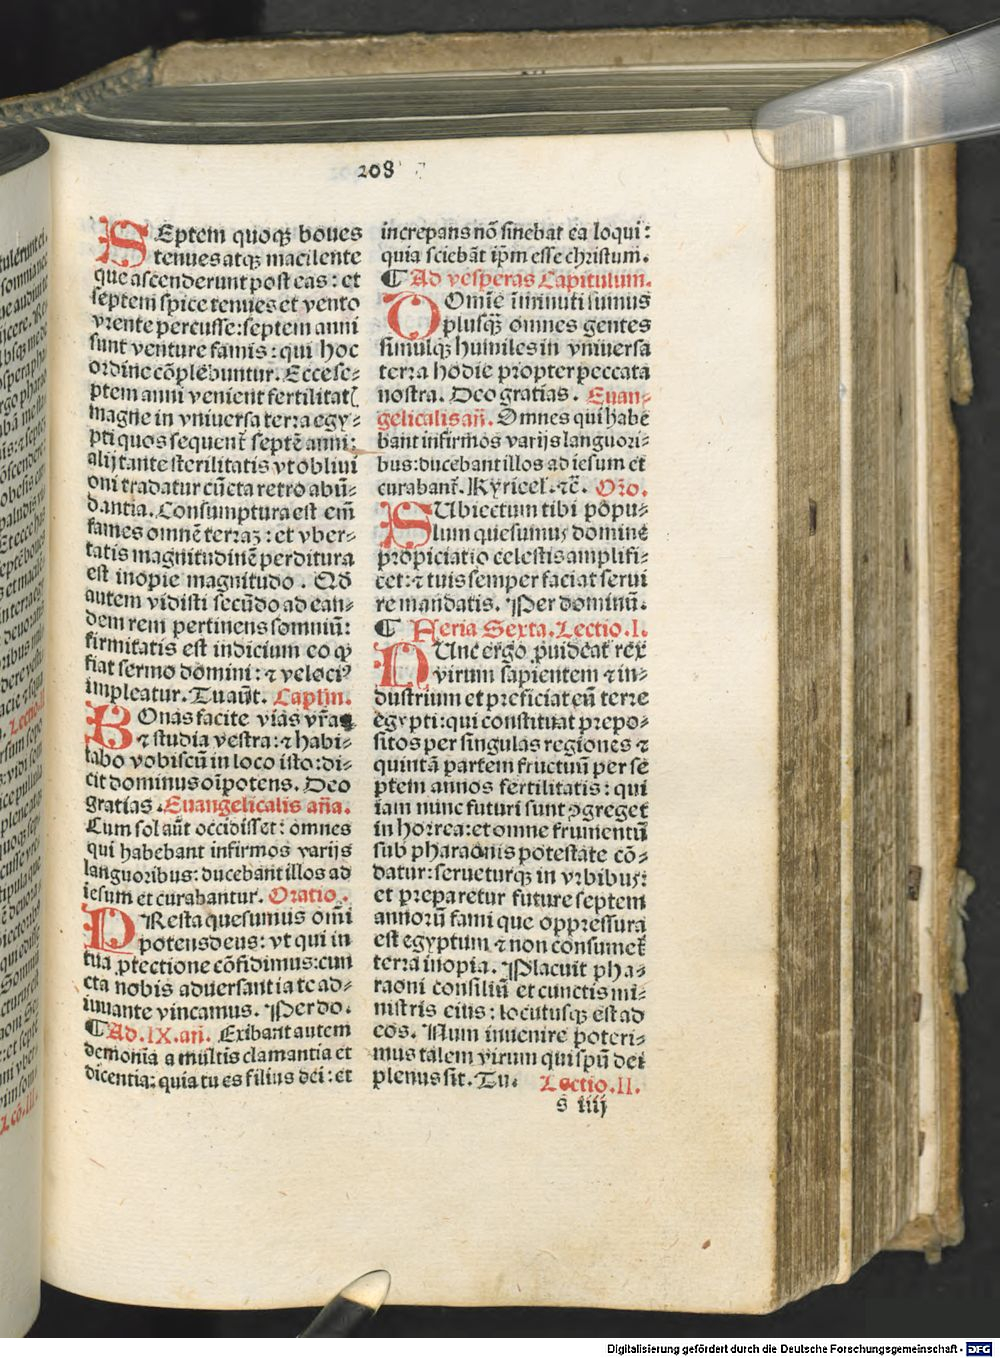 208
SEptem quoqȝ boues
tenues atqȝ macilente
que ascenderunt post eas : et
septem spice tenues et vento
vrente percusse : septem anni
sunt venture famis : qui hoc
ordine cōplebuntur. Ecce se⸗
ptem anni venient fertilitat
magne in vniuersa terra egy⸗
pti quos sequent̄ septē anni :
alij tante sterilitatis vt obliui
oni tradatur cūcta retro abū⸗
dantia. Consumptura est em̄
fames omnē terraȝ : et vber⸗
tatis magnitudinē perditura
est inopie magnitudo. Qd̄
autem vidisti secūdo ad ean⸗
dem rem pertinens somniū :
firmitatis est indicium eo ꝙ
fiat sermo domini : ⁊ veloci⁹
impleatur. Tu aūt. Caplm.
BOnas facite vias vr̄as
⁊ studia vestra : ⁊ habi⸗
tabo vobiscū in loco isto : di⸗
cit dominus oīpotens. Deo
gratias. Euangelicalis añа.
Cum sol aūt occidisset : omnes
qui habebant infirmos varijs
languoribus : ducebant illos ad
iesum et curabantur. Oratio.
PResta quesumus om̄i
potens deus : vt qui in
tua ꝓtectione cōfidimus : cun
cta nobis aduersantia te ad⸗
iuuante vincamus. Per do.
¶ Ad .IX. añ. Exibant autem
demonia a multis clamantia et
dicentia : quia tu es filius dei : et
increpans nō sinebat ea loqui :
quia sciebāt ip̄m esse christum.
¶ Ad vesperas Capitulum.
DOmīe īminuti sumus
plusqȝ omnes gentes
simulqȝ humiles in vniuersa
terra hodie propter peccata
nostra. Deo gratias. Euan⸗
gelicalis añ. Omnes qui habe
bant infirmos varijs languori⸗
bus : ducebant illos ad iesum et
curabant̄. Kyriel. ⁊c̄. Or̄o.
SUbiectum tibi popu⸗
lum quesumus domine
propiciatio celestis amplifi⸗
cet : ⁊ tuis semper faciat serui
re mandatis. Per dominū.
¶ Feria Sexta. Lectio. I.
NUnc ergo ꝓuideat rex
virum sapientem ⁊ in⸗
dustrium et preficiat eū terre
egypti : qui constituat prepo⸗
sitos per singulas regiones ⁊
quintā partem fructuū per se
ptem annos fertilitatis : qui
iam nunc futuri sunt ꝯgreget
in horrea : et omne frumentū
sub pharaonis potestate cō⸗
datur : serueturqȝ in vrbibus :
et preparetur future septem
annorū fami que oppressura
est egyptum ⁊ non consumet̄
terra inopia. Placuit pha⸗
raoni consiliū et cunctis mi⸗
nistris eius : locutusqȝ est ad
eos. Num inuenire poteri⸗
mus talem virum qui spū dei
plenus sit. Tu. Lectio. II.
s iiij
Digitalisierung gefördert durch die Deutsche Forschungsgemeinschaft - DFG